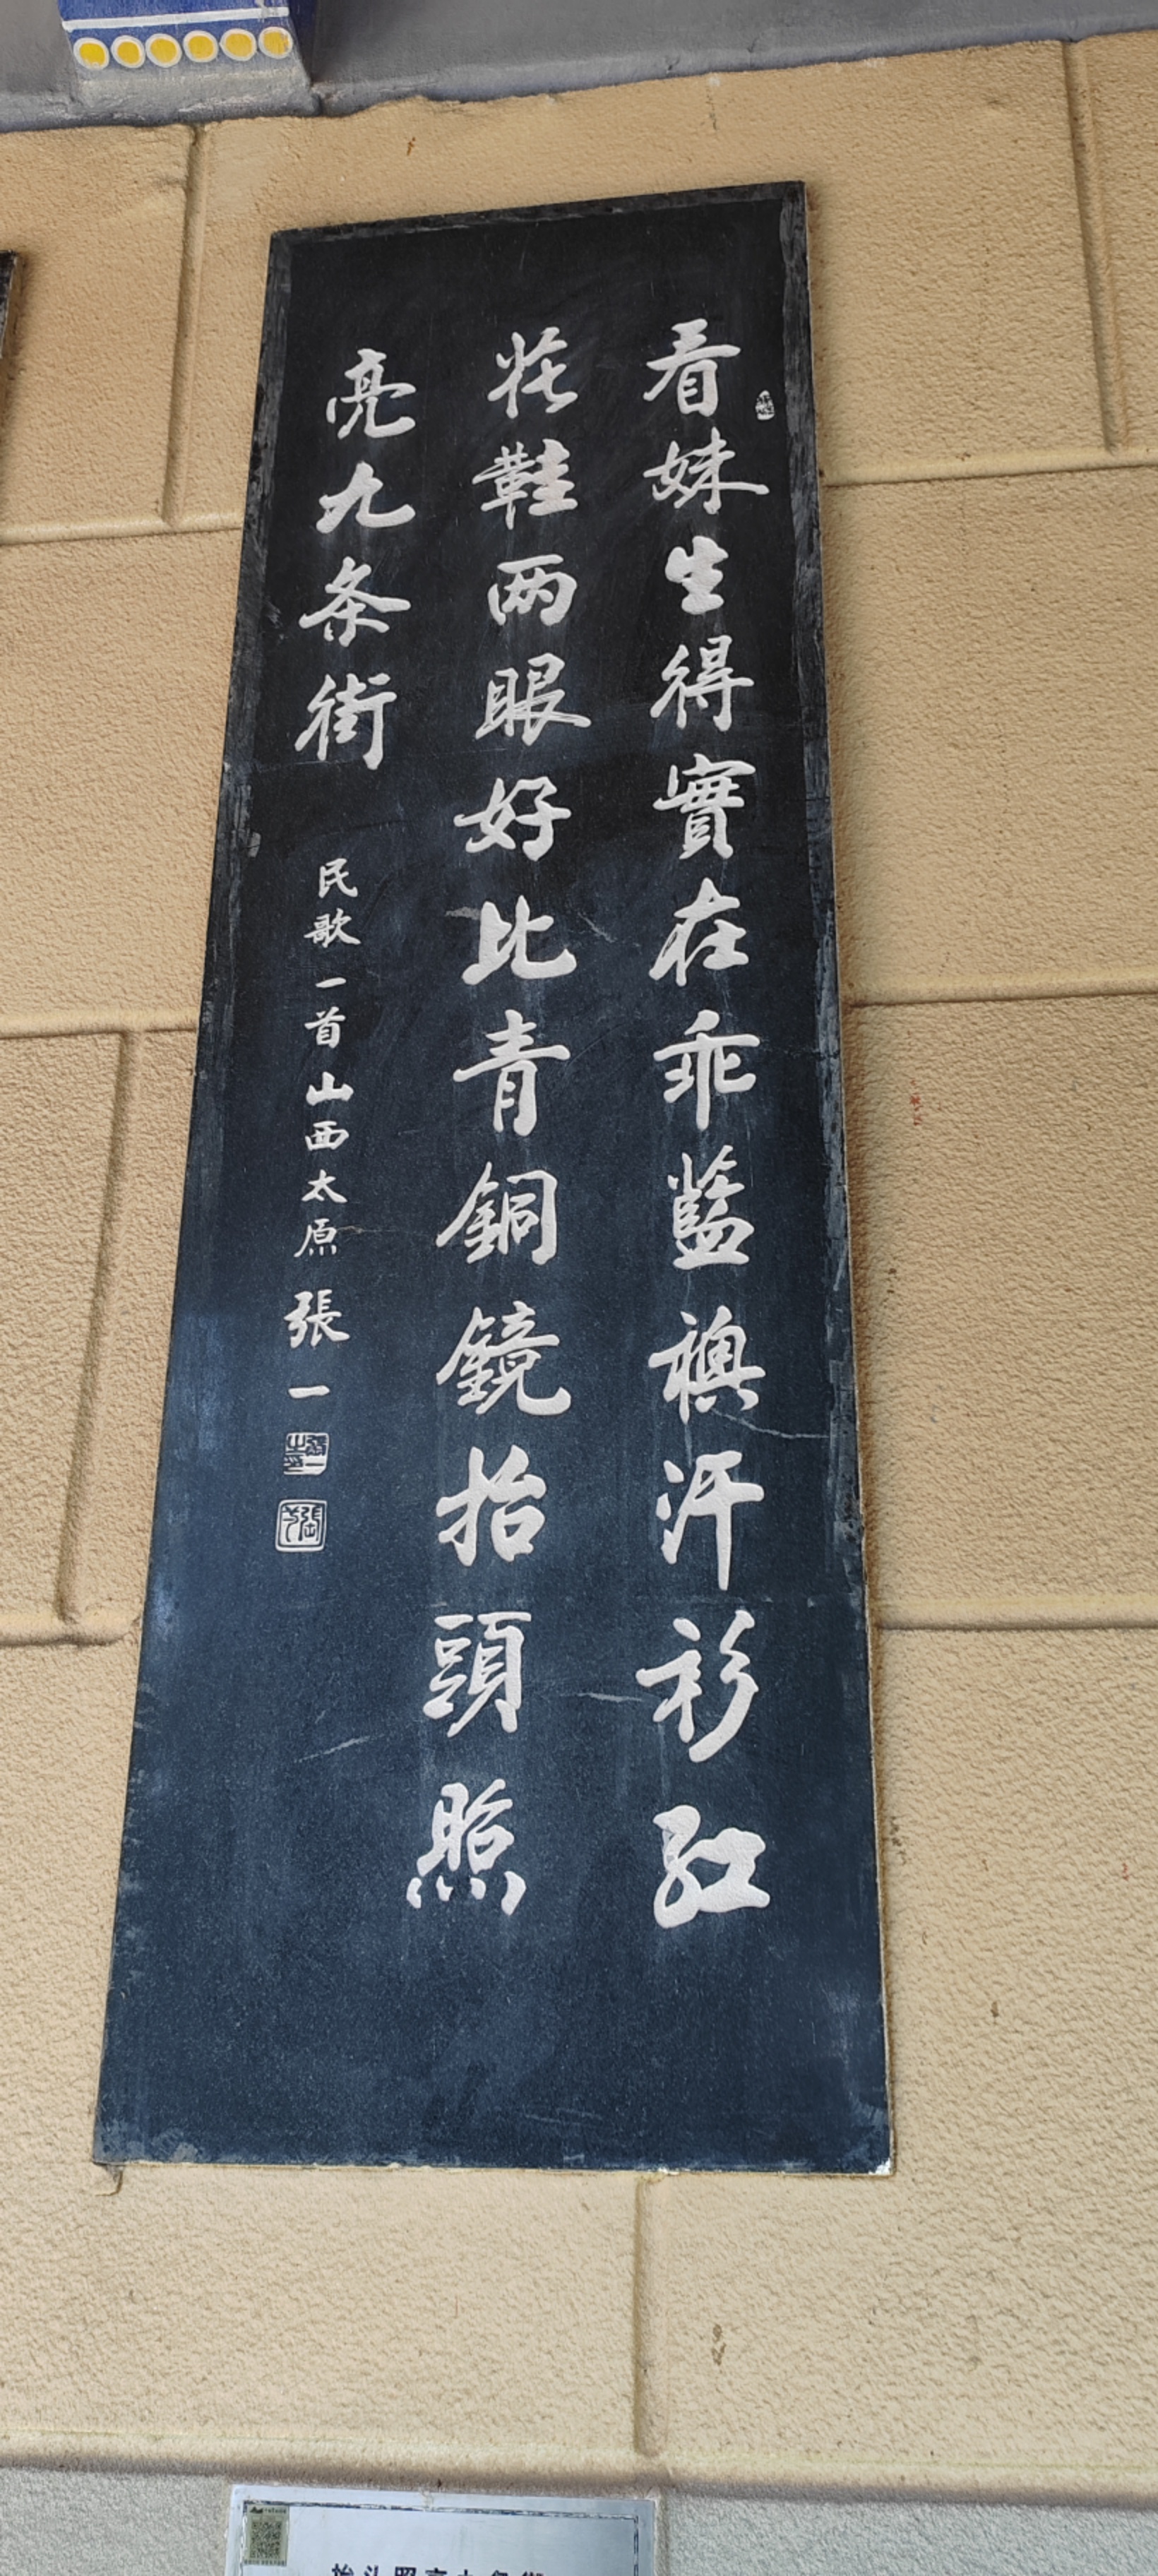 看妹生得實在乖藍襖汗衫红
花鞋两眼好比青銅鏡抬頭照
亮九条街
民歌一首山西太原張一
抬头照亮九条街